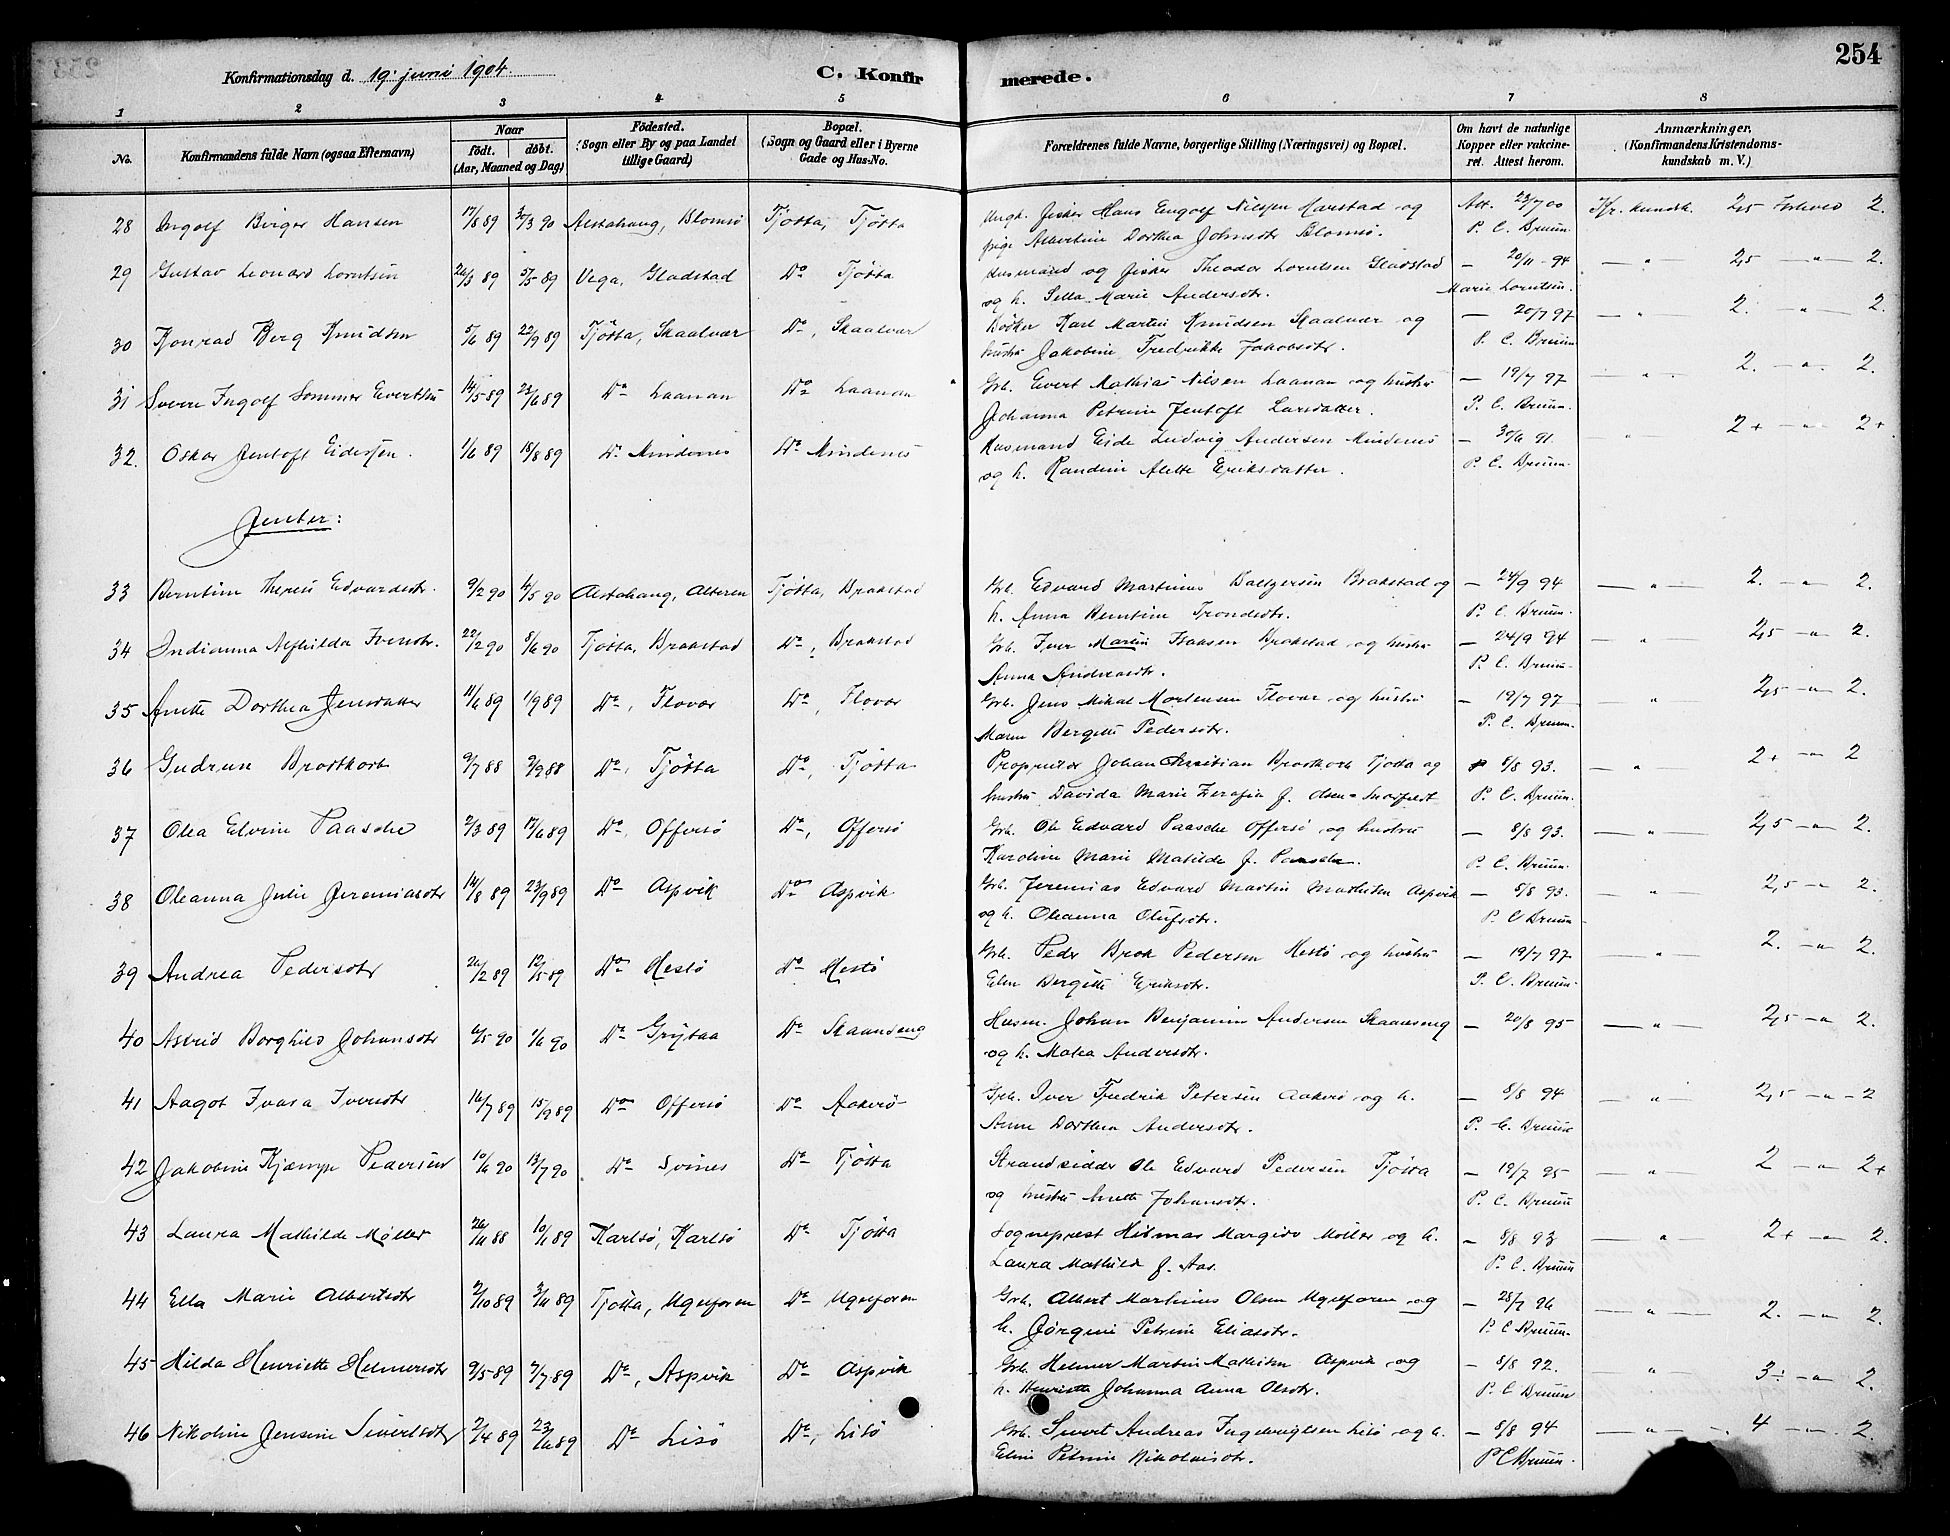 254
Konfirmationsdag d. 19. juni 1904.
C. Konfirmerede.
1 2 3 4 5 6 7 8
No.
Konfirmandens fulde Navn (ogsaa Efternavn)
Naar
födt. döbt.
(Aar, Maaned og Dag)
Födested.
(Sogn eller By og paa Landet
tillige Gaard)
Bopæl.
(Sogn og Gaard eller i Byerne
Gade og Hus-No.
Forældrenes fulde Navne, borgerlige Stilling (Næringsvei) og Bopæl.
Om havt de naturlige
Kopper eller vakcine-
ret. Attest herom.
Anmærkninger.
(Konfirmandens Kristendoms-
kundskab m. V.)
28 Ingolf Birger Hansen 17/8 89 30/3 90 Alstahaug, Blomsö Tjötta, Tjötta Ungk. fisker Hans Engolf Nilsen Marstad og Att. 23/7 00 Kr. kundsk. 2,5 Forhold 2.
pige Albertine Dorthea Johnsdtr Blomsö. P. C. Bruun.
29 Gustav Leonard Lorntsen 26/3 89 5/5 89 Vega, Gladstad Do Tjötta Husmand og fisker Theodor Lorntsen Gladstad — 20/11 - 94 — " — 2,5 — " — 2.
og h. Sella Marie Andersdtr. Marie Lorntsen.
30 Konrad Berg Knudsen 5/6 89 22/9 89 Tjötta, Skaalvær Do, Skaalvær Bödker Karl Martin Knudsen Skaalvær og — 20/7 97 — " — 2. — " — 2.
hustru Jakobine Fredrikke Jakobsdtr. P. C. Bruun
31 Sverre Ingolf Sommer Evertsen 14/5 89 23/6 89 Do Laanan Do Laanan Grb. Evert Mathias Nilsen Laanan og hustru — 19/7 97 — " — 2. — " — 2.
Johanna Petrine Jentoft Larsdatter. P. C. Bruun.
32. Oskar Jentoft Eidersen. 1/6 89 18/8 89 Do Mindenes Do Mindenes Husmand Eide Ludvig Andersen Mindenes — 30/6 91. — " — 2+ — " — 2+.
og h. Randine Alette Eriksdatter. P. C. Bruun.
Jenter:
33 Berntine Therese Edvardsdtr. 9/2 90 4/5 90 Alstahaug, Alteren Tjötta, Brakstad Grb. Edvard Martinus Baltzersen Brakstad og — 24/9 94 — " — 2. — " — 2.
h. Anna Berntine Trondsdtr. P. C. Bruun.
34 Indianna Alfhilda Iversdtr. 22/2 90 8/6 90 Tjötta, Brakstad Do, Brakstad Grb. Iver Martin Isaksen Brakstad og hustru — 24/9 94 — " — 2,5 — " — 2.
Anna Andersdtr. P. C. Bruun-
35 Anette Dorthea Jensdatter 11/6 89 1/9 89 Do, Flovær Do, Flovær Grb. Jens Mikal Mortensen Flovær og hustru — 19/7 97 — " — 2,5 — " — 2.
Maren Bergitte Pedersdtr. P. C. Bruun.
36 Gudrun Brodtkorb 9/7 88 9/9 88 Do, Tjötta Do, Tjötta Proprietær Johan Christian Brodtkorb Tjötta og 8/8 93. — " — 2+ — " — 2
hustru Davida Marie Serafia f. Olsen P. C. Bruun.
37 Olea Elvine Paasche 2/3 89 17/6 89 Do, Offersö Do, Offersö Grb. Ole Edvard Paasche Offersö og hustru — 8/8 93. — " — 2,5 — " — 2.
Karoline Marie Matilde f. Paasche. P. C. Bruun.
38 Oleanna Julie Jeremiasdtr 14/8 89 23/9 89 Do Aspvik Do Aspvik Grb. Jeremias Edvard Martin Mathisen Aspvik — 8/8 93. — " — 2,5 — " 2.
og h. Oleanna Olufsdtr. P. C Bruun
39 Andrea Pedersdtr 26/2 89 12/5 89 Do Hestö Do Hestö Grb. Peder Brok Pedersen Hestö og hustru — 19/7 97 — " — 2. — " — 2.
Elen Bergitte Eriksdtr. P. C. Bruun.
40 Astrid Borghild Johansdtr 6/5 90 1/6 90 Do Grytaa Do Skaanseng Husm. Johan Benjamin Andersen Skaanseng — 20/8 95 — " — 2,5 — " 2.
og h. Malea Andersdtr.
41 Aagot Ivara Iversdtr 16/7 89 15/9 89 Do Offersö Do Aakerö Grb. Iver Fredrik Petersen Aakerö og h. — 8/8 94 — " — 2,5 — " — 2
Anne Dorthea Andersdtr. P. C. Bruun
42 Jakobine Kjempe Pedersen 10/6 90 13/7 90 Do Svines Do Tjötta Strandsidder Ole Edvard Pedersen Tjötta — 19/7 95 — " — 2 — " — 2+
og hustru Anette Johansdtr. P. C. Bruun
43 Laura Mathilde Møller 26/11 88 10/1 89 Karlsö, Karlsö Do Tjötta Sogneprest Hilmar Margido Möller og h. — 8/8 93 — " — 2+ — " — 2.
Laura Mathilde f. Aas. P. C. Bruun
44 Ella Marie Albertsdtr 2/10 89 3/11 89 Tjötta, Ugelforen Do Ugelforen Grb. Albert Martinus Olsen Ugelforen og — 28/7 96 — " — 2. — " — 2.
h. Jørgine Petrine Eliasdtr. P. C Bruun.
45 Hilda Henriette Helmersdtr 9/5 89 7/7 89 Do, Aspvik Do Aspvik Grb. Helmer Martin Mathisen Aspvik og — 8/8 92. — " — 3÷ — " — 2.
h. Henriette Johanna Anna Olsdtr. P. C Bruun
46 Nikoline Jensine Sivertsdtr 2/4 89 23/6 89 Do Lisö Do, Lisö Grb. Sivert Andreas Ingebrigtsen Lisö og h. — 8/8 94 — " — 4 — " — 2.
Eline Petrine Nikolaisdtr. P C Bruun.